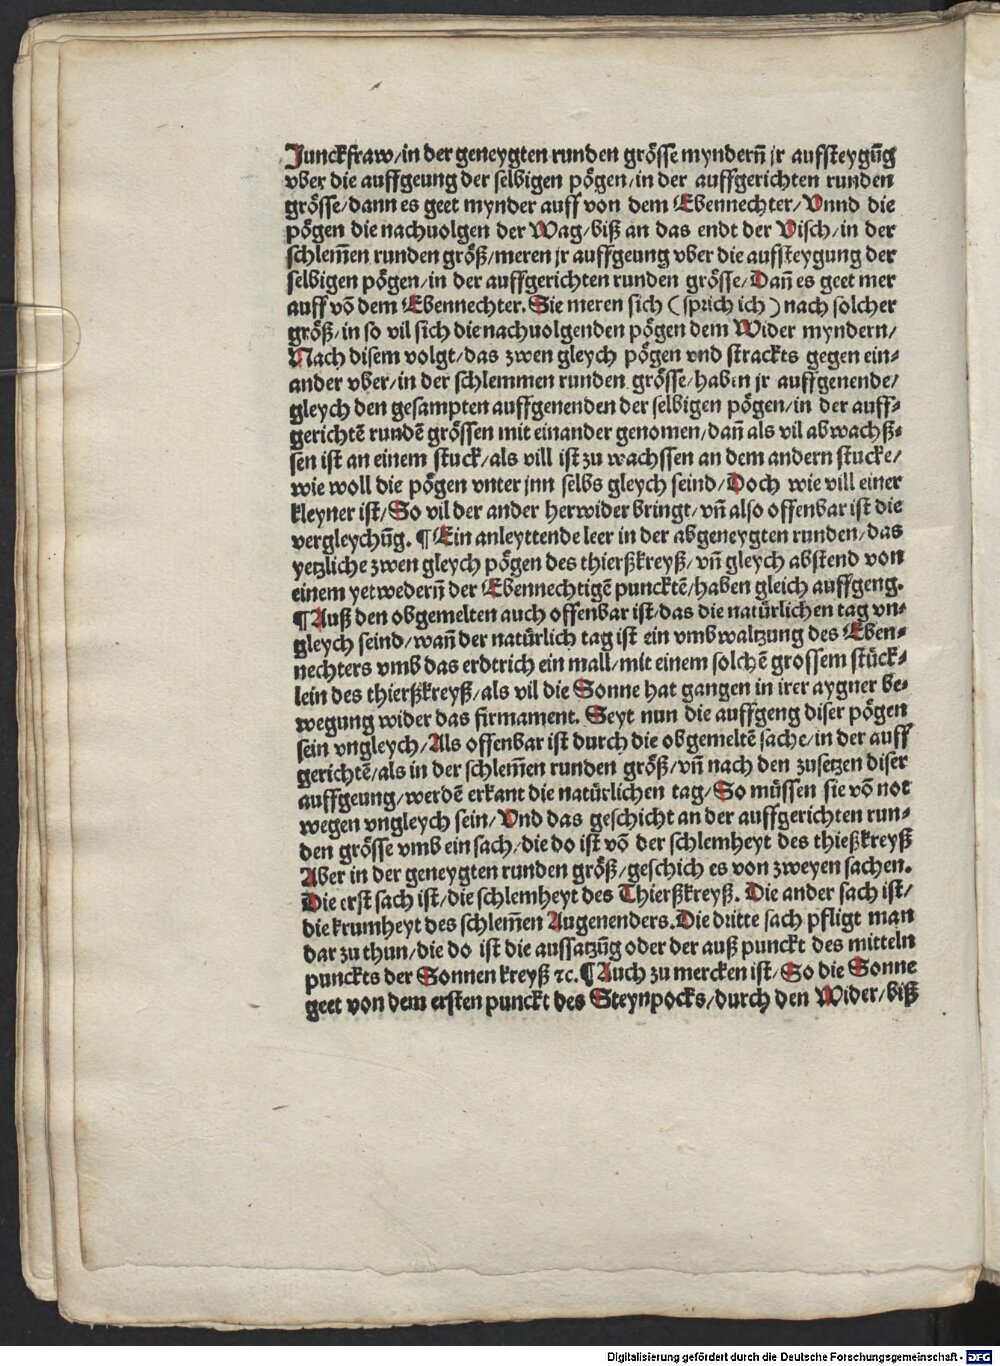 Junckfraw/in der geneygten runden grösse myndern̄ jr auffsteygūg
vber die auffgeung der selbigen pögen/in der auffgerichten runden
grösse/dann es geet mynder auff von dem Ebennechter/Vnnd die
pögen die nachuolgen der Wag/biß an das endt der Visch/in der
schlem̄en runden größ/meren jr auffgeung vber die auffsteygung der
selbigen pögen/in der auffgerichten runden grösse/Dan̄ es geet mer
auff vō dem Ebennechter. Sie meren sich (sprich ich) nach solcher
größ/in so vil sich die nachuolgenden pögen dem Wider myndern/
Nach disem volgt/das zwen gleych pögen vnd strackts gegen ein⸗
ander vber/in der schlemmen runden grösse/haben jr auffgenende/
gleych den gesampten auffgenenden der selbigen pögen/in der auff⸗
gerichtē rundē grössen mit einander genomen/dan̄ als vil abwachß⸗
sen ist an einem stuck/als vill ist zu wachssen an dem andern stucke/
wie woll die pögen vnter jnn selbs gleych seind/Doch wie vill einer
kleyner ist/So vil der ander herwider bringt/vn̄ also offenbar ist die
vergleychūg. ¶ Ein anleyttende leer in der abgeneygten runden/das
yetzliche zwen gleych pögen des thierßkreyß/vn̄ gleych abstend von
einem yetwedern̄ der Ebennechtigē puncktē/haben gleich auffgeng.
¶ Auß den obgemelten auch offenbar ist/das die natürlichen tag vn⸗
gleych seind/wan̄ der natürlich tag ist ein vmbwaltzung des Eben⸗
nechters vmb das erdtrich ein mall/mit einem solchē grossem stück⸗
lein des thierßkreyß/als vil die Sonne hat gangen in irer aygner be⸗
wegung wider das firmament. Seyt nun die auffgeng diser pögen
sein vngleych/Als offenbar ist durch die obgemeltē sache/in der auff
gerichtē/als in der schlem̄en runden größ/vn̄ nach den zusetzen diser
auffgeung/werdē erkant die natürlichen tag/So müssen sie vō not
wegen vngleych sein/Vnd das geschicht an der auffgerichten run⸗
den grösse vmb ein sach/die do ist vō der schlemheyt des thießkreyß
Aber in der geneygten runden größ/geschich es von zweyen sachen.
Die erst sach ist/die schlemheyt des Thierßkreyß. Die ander sach ist/
die krumheyt des schlem̄en Augenenders. Die dritte sach pfligt man
dar zu thun/die do ist die aussatzūg oder der auß punckt des mitteln
punckts der Sonnen kreyß ⁊c. ¶ Auch zu mercken ist/So die Sonne
geet von dem ersten punckt des Steynpocks/durch den Wider/biß
Digitalisierung gefördert durch die Deutsche Forschungsgemeinschaft - DFG